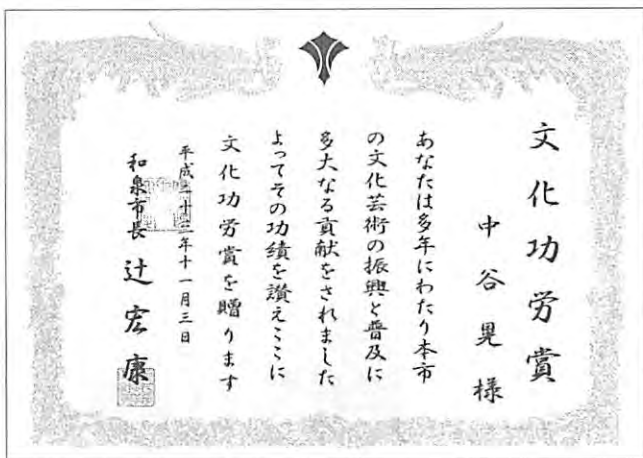 文化功労賞
中谷晃様
あなたは多年にわたり本市
の文化芸術の振興と普及に
多大なる貢献をされました
よってその功績を讃えここに
文化功労賞を贈ります
平成二十三年十一月三日
和泉市長 辻宏康